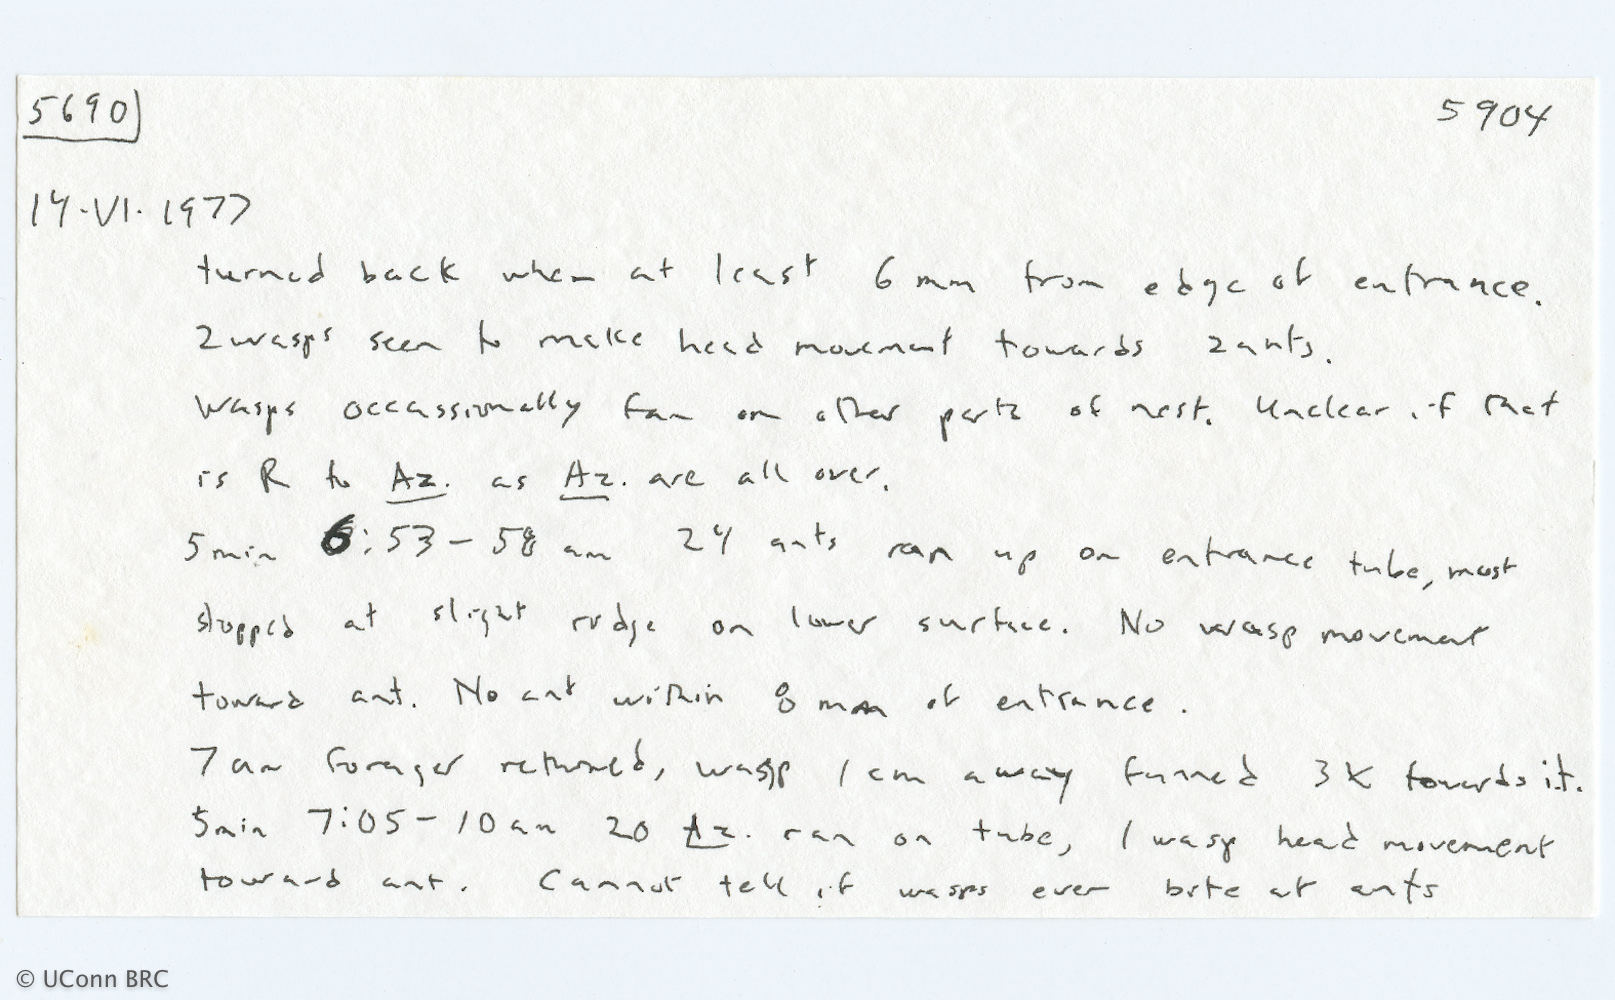 5690 5904
14.VI.1977
turned back when at least 6 mm from edge of entrance.
2 wasps seen to make head movement towards 2 ants.
Wasps occassionally fan on other parts of nest. Unclear if that
is R to Az. as Az. are all over.
5 min 6:53-58 am 24 ants ran up on entrance tube, most
stopped at slight ridge on lower surface. No wasp movement
toward ant. No ant within 8 mm of entrance.
7 am forager returned, wasp 1 cm away fanned 3X towards it.
5 min 7:05-10 am 20 Az. ran on tube, 1 wasp head movement
toward ant. Cannot tell if wasps ever bite at ants
© UConn BRC